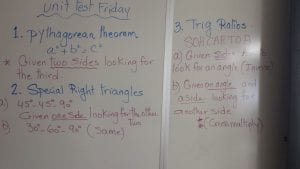 unit Test Friday
1. pythagorean theorem
a²+b²=c²
* Given two sides looking for
the third.
2. Special Right triangles
a) 45°-45°-90°
Given one side looking for the other
Two
b) 30°-60°-90° (Same)
3. Trig Ratios
SOHCAHTOA
a) Given
look for an angle (Inverse)
b) Given one angle and
a side looking for
another side
* (Cross multiply)